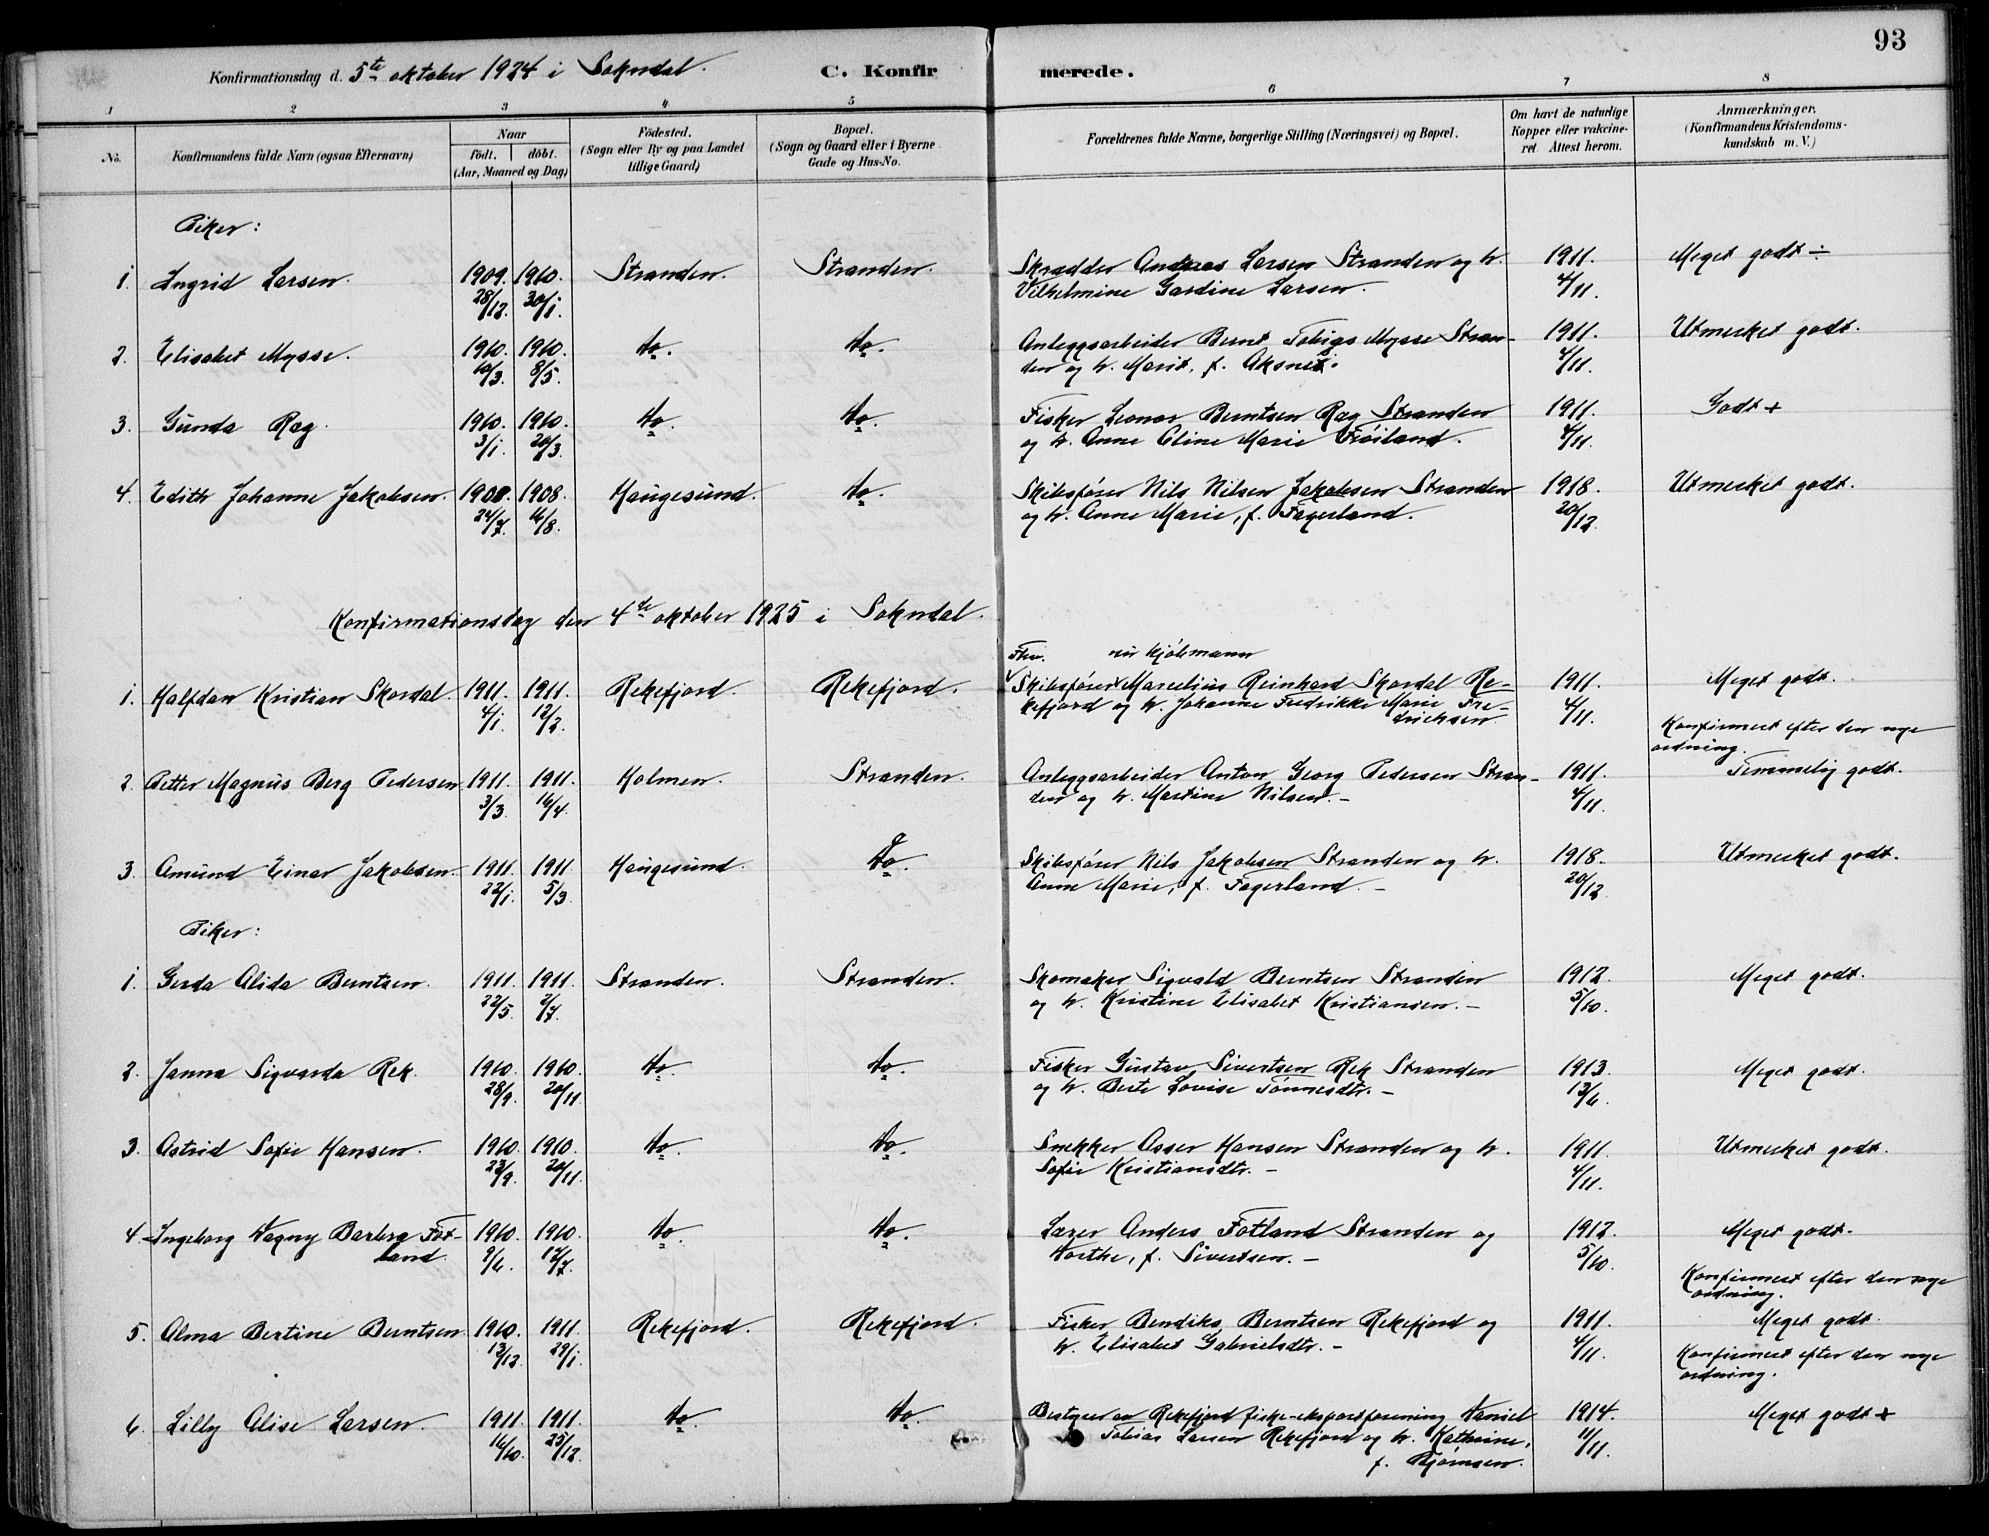 93
Konfirmationsdag d. 5te oktober 1924 i Sokndal. C. Konfirmerede.
1 2 3 4 5 6 7 8
No. Konfirmandens fulde Navn (ogsaa Efternavn) Naar født. døbt. (Aar, Maaned og Dag) Fødested. (Sogn eller By og paa Landet tillige Gaard) Bopæl. (Sogn og Gaard eller i Byerne Gade og Hus-No. Forældrenes fulde Navne, borgerlige Stilling (Næringsvei) og Bopæl. Om havt de naturlige Kopper eller vakcineret. Attest herom. Anmærkninger. (Konfirmandens Kristendomskundskab m. V.)
Piker:
1. Ingrid Larsen. 1909. 1910. Stranden. Stranden. Skrædder Andreas Larsen Stranden og h. 1911. Meget godt ÷
28/12. 30/1. Vilhelmine Gardine Larsen. 4/11.
2. Elisabet Mysse. 1910. 1910. do. do. Anleggsarbeider Bernt Tobias Mysse Stran- 1911. Utmerket godt.
10/3. 8/5. den og h. Marit, f. Aksnes. 4/11.
3. Gunda Ræg. 1910. 1910. do. do. Fisker Leonar Berntsen Ræg Stranden 1911. Godt +
3/1. 20/3. og h. Anne Oline Marie Frøiland. 4/11.
4. Edith Johanne Jakobsen. 1908. 1908. Haugesund. do. Skibsfører Nils Nilsen Jakobsen Stranden 1918. Utmerket godt.
24/7. 16/8. og h. Anne Marie, f. Fagerland. 20/12.
Konfirmationsdag den 4de oktober 1925 i Sokndal.
Fhv. nu kjøbmann
1. Halfdan Kristian Skordal. 1911. 1911. Rekefjord. Rekefjord. Skibsfører Marcelius Reinhard Skordal Re- 1911. Meget godt.
4/1. 12/2. kefjord og h. Johanne Fredrikke Marie Fre- 4/11. Konfirmert efter den nye
driksen ordning.
2. Petter Magnus Berg Pedersen 1911. 1911. Holmen. Stranden. Anleggsarbeider Anton Georg Pedersen Stran- 1911. Temmelig godt.
3/3. 16/4. den og h. Martine Nilsen. — 4/11.
3. Amund Einar Jakobsen. 1911. 1911 Haugesund. do. Skibsfører Nils Jakobsen Stranden og h. 1918. Utmerket godt.
22/1. 5/3. Anne Marie, f. Fagerland. — 20/12
Piker:
1. Gerda Alida Berntsen. 1911. 1911. Stranden. Stranden. Skomaker Sigvald Berntsen Stranden 1912. Meget godt.
22/5. 2/7. og h. Kristine Elisabet Kristiansen. — 5/10.
2. Janna Sigvarda Rek. 1910. 1910. do. do. Fisker Gustav Sivertsen Rek Stranden 1913. Meget godt.
28/9. 20/11. og h. Berte Lovise Tønnesdtr. — 13/6.
3. Astrid Sofie Hansen. 1910. 1910. do. do. Snekker Osser Hansen Stranden og h. 1911. Utmerket godt.
22/9. 20/11. Sofie Kristiansdtr. — 4/11.
4. Ingeborg Dagny Barbra Fot- 1910. 1910. do. do. Lærer Anders Fotland Stranden og 1912. Meget godt.
land. 9/6. 17/7. Dorthe, f. Sivertsen. — 5/10. Konfirmert efter den nye
ordning.
5. Alma Bertine Berntsen 1910. 1911. Rekefjord. Rekefjord. Fisker Bendiks Berntsen Rekefjord og 1911. Meget godt.
13/12. 29/1. h. Elisabet Gabrielsdtr. — 4/11. Konfirmert efter den nye
ordning.
6. Lilly Alise Larsen. 1911. 1911. do. do. Bestyrer av Rekefjord fiske-eksportforening Daniel 1914. Meget godt +
16/10. 25/12. Tobias Larsen Rekefjord og h. Kathrine, 11/11.
f. Bjørnsen.